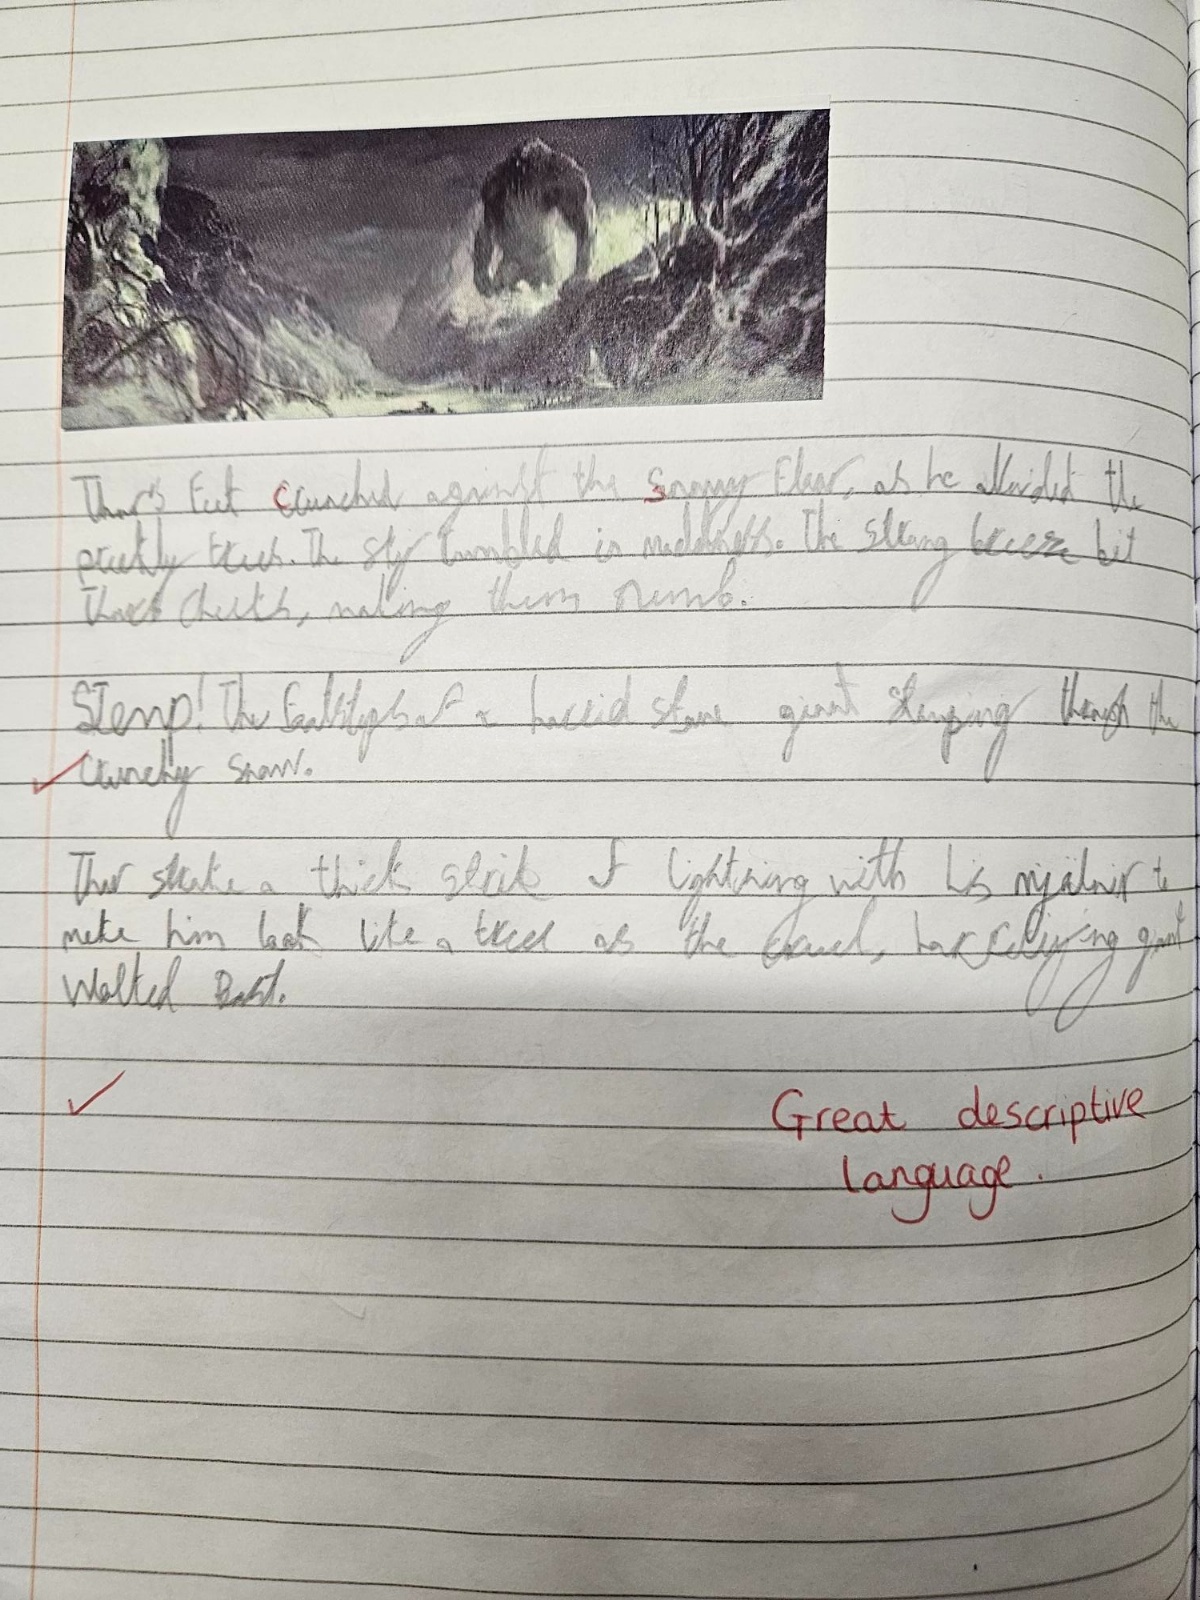 Thor's feet crunched against the snowy floor, as he avoided the
prickly trees. The sky rumbled in madness. The strong breeze bit
Thors cheeks, making them numb.
Stomp! The footsteps of a horrid stone giant stomping through the
crunchy snow.
Thor a thick of lightning with his mjolnir to
make him look like a tree as the cruel, giant
walked Past.
Great descriptive
language.